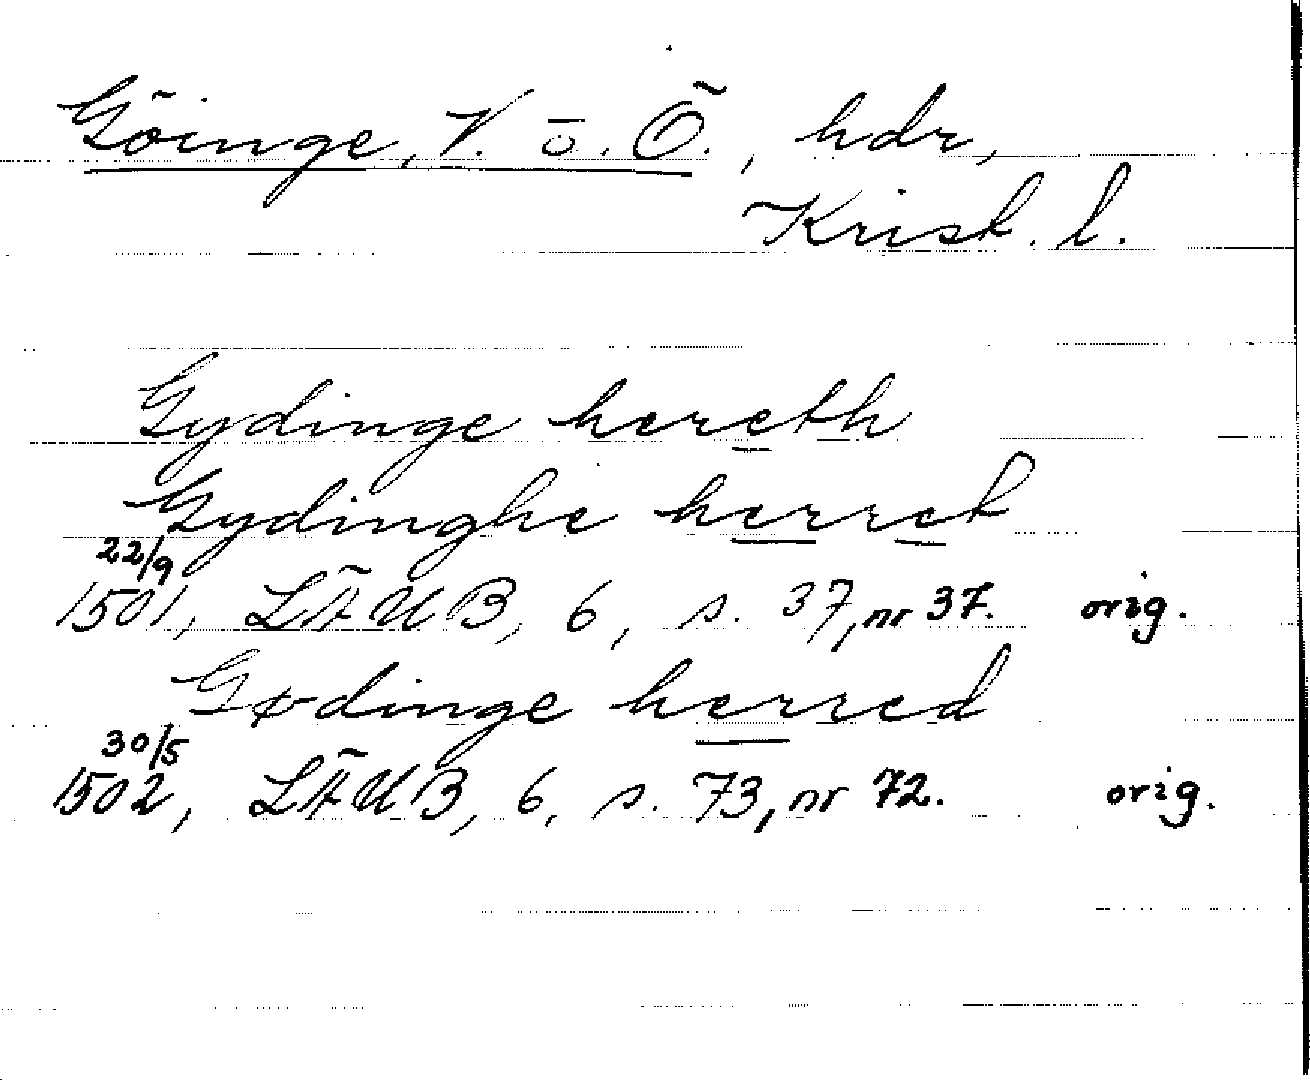 Göinge, V. o. Ö., hdr,
Krist. l.
Gydinge hereth
Gydinghe herret
22/9
1501, LÄUB, 6, s. 37, nr 37. orig.
Gødinge herred
30/5
1502, LÄUB, 6, s. 73, nr 72. orig.